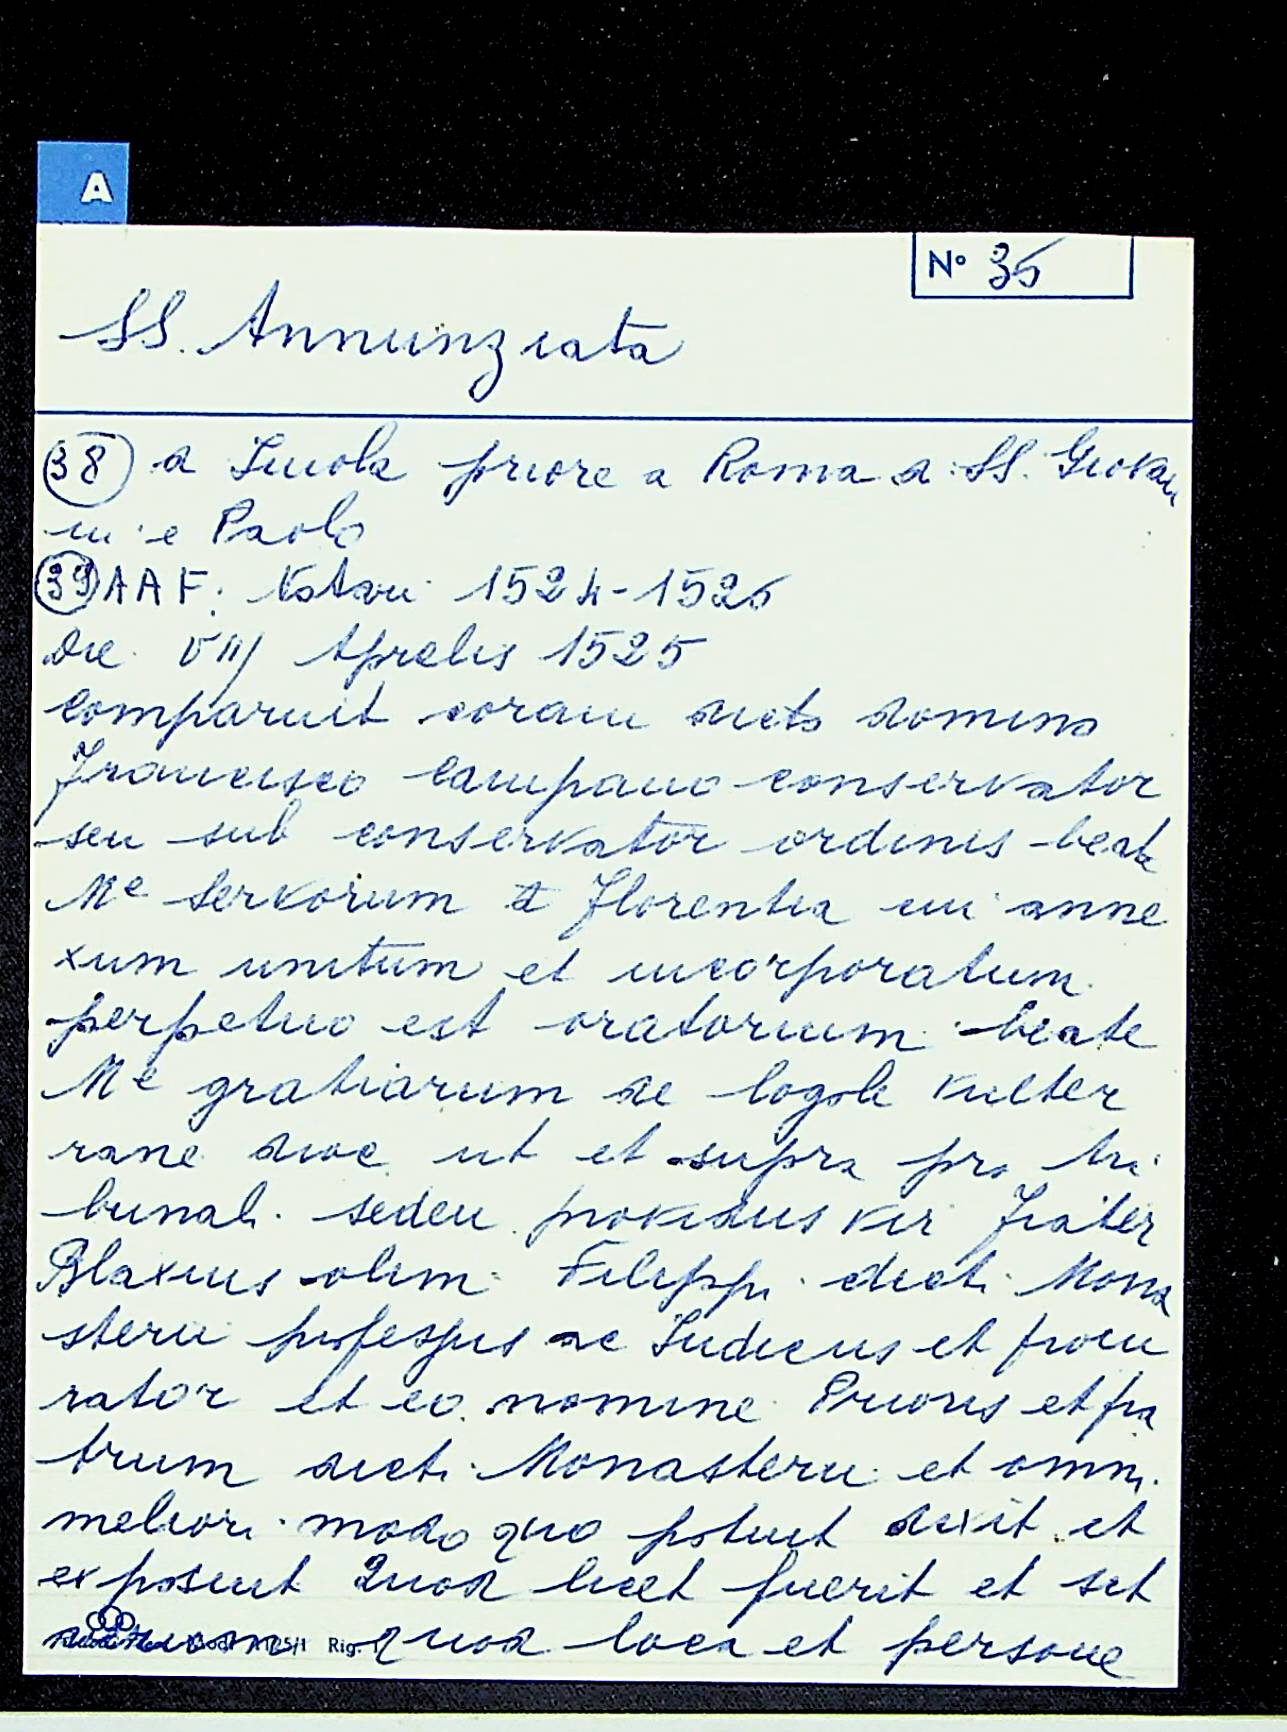 A
N° 35
SS. Annunziata
38 a Imola priore a Roma a SS. Giovan
ni e Paolo
39 AAF. Notari 1524-1525
Die VII Aprelis 1525
comparuit coram dicto domino
Francisco Campano conservator
seu sub conservator ordinis beate
Me Servorum de Florentia cui anne
xum unitum et incorporatum
perpetuo est oratorium beate
Me gratiarum de
rane dioc ut et supra pro tri
bunali seden providus vir frater
Blaxius olim Filippi dicti Mona
sterii professus ac Sindicus et procu
rator et eo nomine Prioris et fra
trum dicti Monasterii et omni
meliori modo quo potuit dixit et
exposuit Quod licet fuerit et sit
quod loca et persone